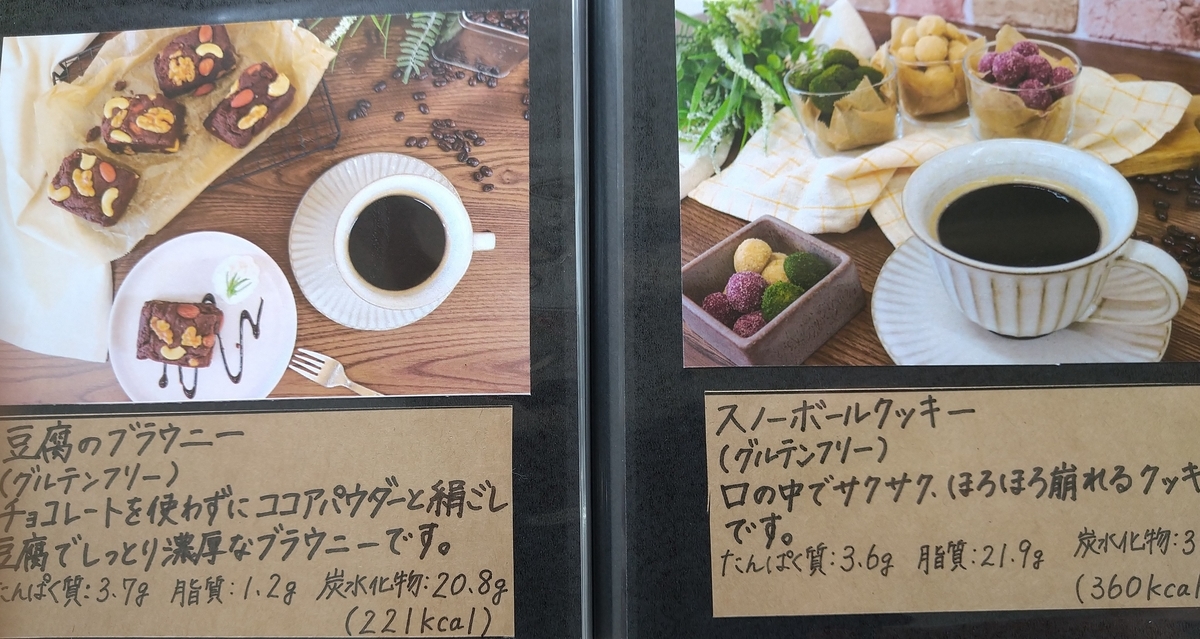 豆腐のブラウニー
(グルテンフリー)
チョコレートを使わずにココアパウダーと絹ごし
豆腐でしっとり濃厚なブラウニーです。
たんぱく質:3.7g 脂質:1.2g 炭水化物:20.8g
(221kcal)
スノーボールクッキー
(グルテンフリー)
口の中でサクサク、ほろほろ崩れるクッキ
です。
たんぱく質:3.6g 脂質:21.9g 炭水化物:3
(360kcal